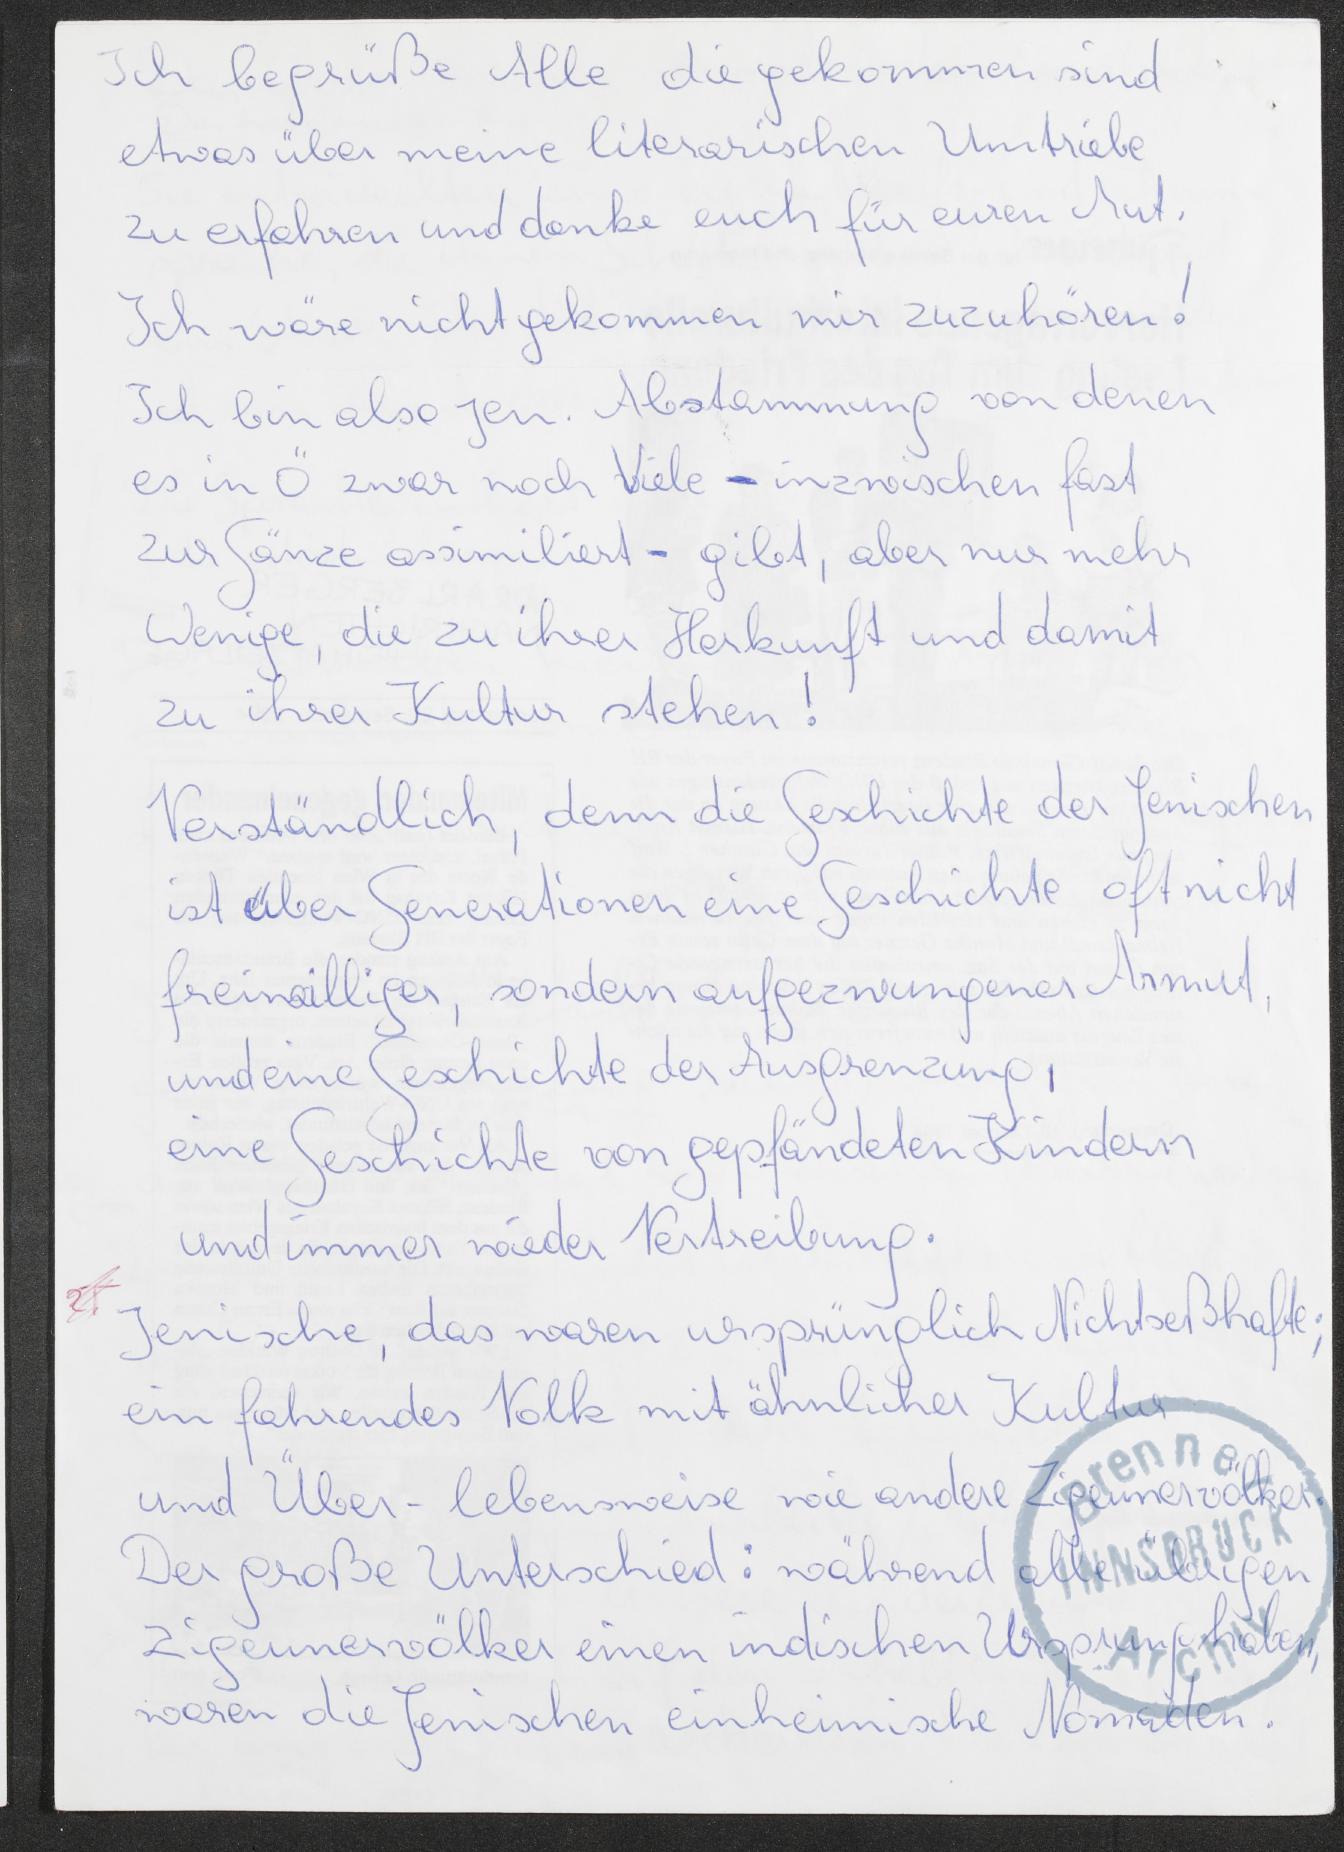 Ich begrüße Alle die gekommen sind
etwas über meine literarischen Umtriebe
zu erfahren und danke euch für euren Mut.
Ich wäre nicht gekommen mir zuzuhören!
Ich bin also jen. Abstammung von denen
es in Ö zwar noch Viele - inzwischen fast
zur Gänze assimiliert - gibt, aber nur mehr
Wenige, die zu ihrer Herkunft und damit
zu ihrer Kultur stehen!
Verständlich, denn die Geschichte der Jenischen
ist über Generationen eine Geschichte oft nicht
freiwilliger, sondern aufgezwungener Armut,
und eine Geschichte der Ausgrenzung,
eine Geschichte von gepfändeten Kindern
und immer wieder Vertreibung.
Jenische, das waren ursprünglich Nichtseßhafte;
ein fahrendes Volk mit ähnlicher Kultur
und Über- lebensweise wie andere Zigeunervölker.
Der große Unterschied: während alle übrigen
Zigeunervölker einen indischen Ursprung haben,
waren die Jenischen einheimische Nomaden.
Brenner
INNSBRUCK
Archiv